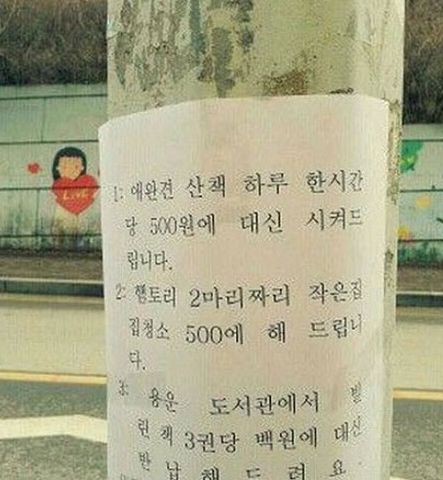 1: 애완견 산책 하루 한시간
당 500원에 대신 시켜드
립니다.
2: 햄토리 2마리짜리 작은집
집청소 500에 해 드립니
다.
3: 용운 도서관에서 빌
린 책 3권당 백원에 대신
반 납 해 드 려 요.
LOVE